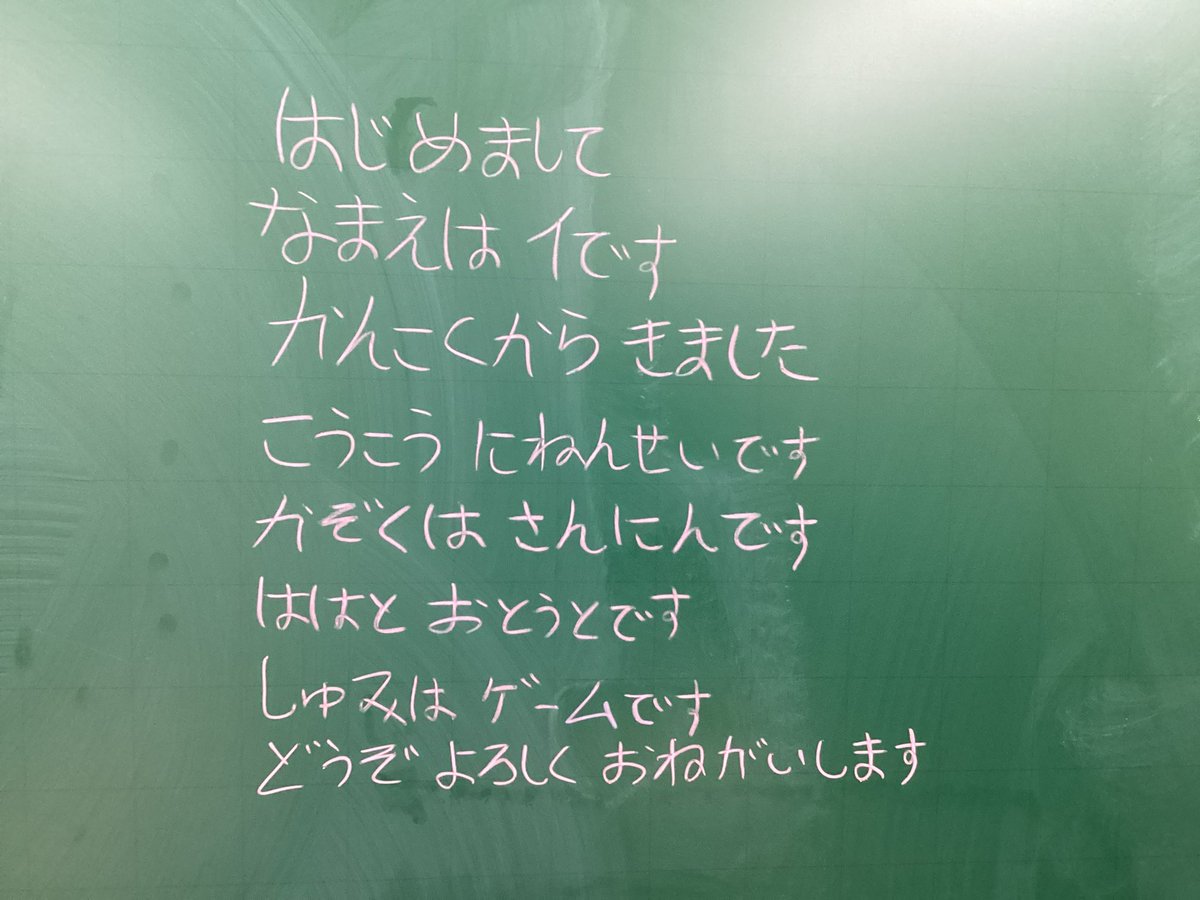 はじめまして
なまえは イです
かんこくから きました
こうこう にねんせいです
かぞくは さんにんです
ははと おとうとです
しゅみは ゲームです
どうぞ よろしく おねがいします